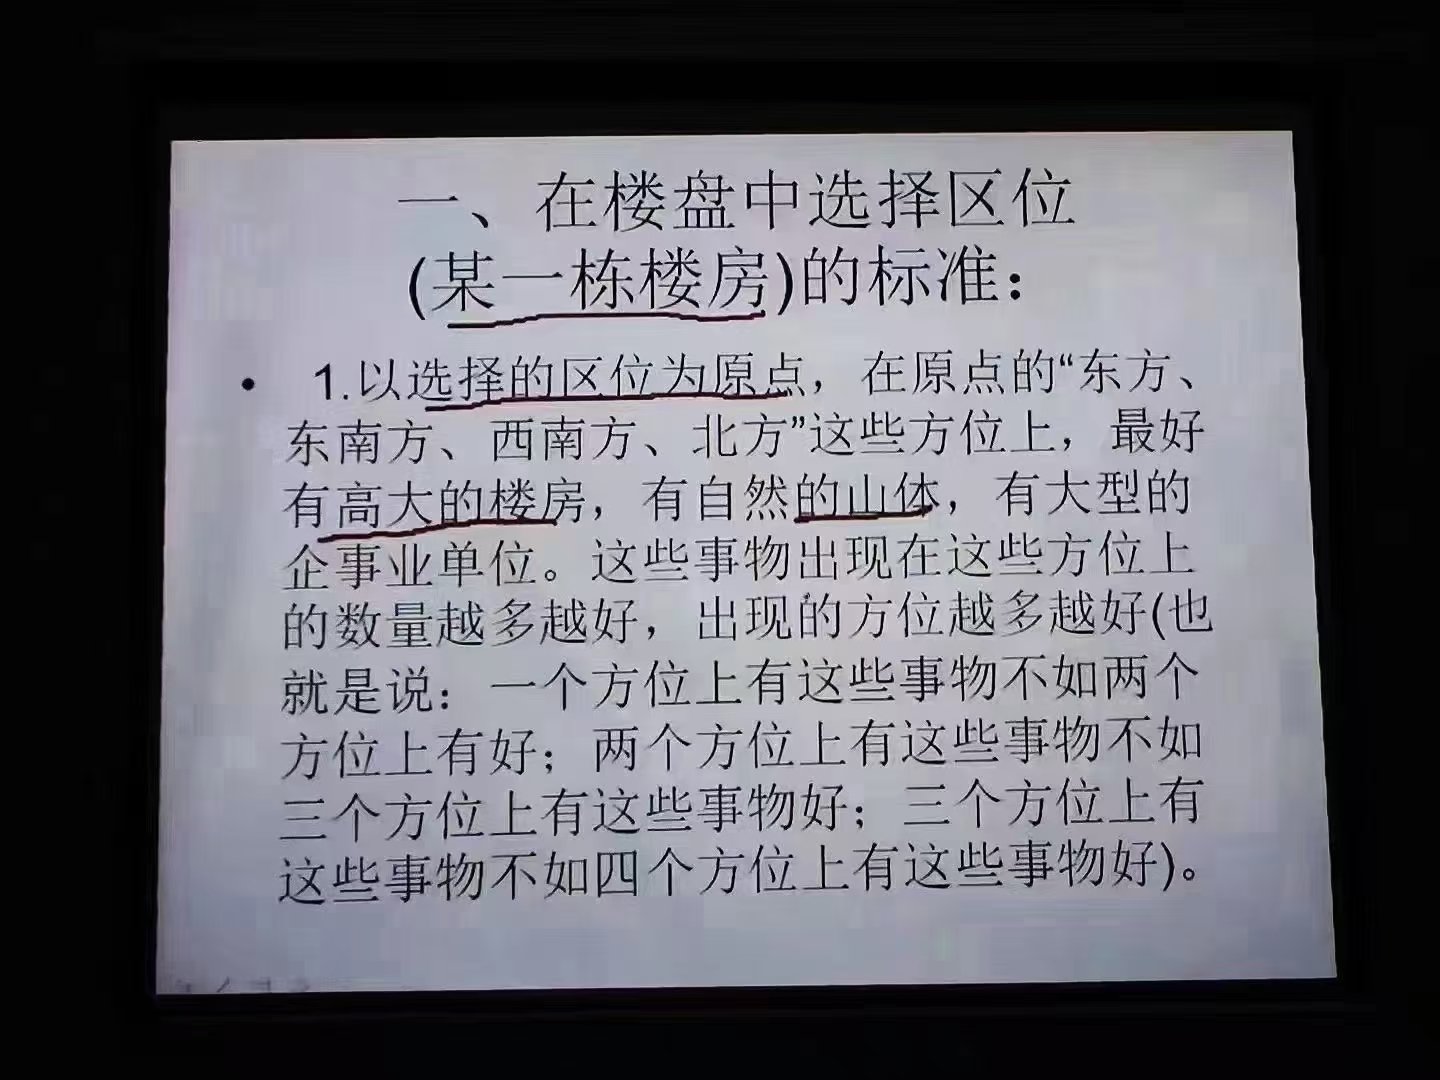 一、在楼盘中选择区位
(某一栋楼房)的标准：
• 1.以选择的区位为原点，在原点的“东方、
东南方、西南方、北方”这些方位上，最好
有高大的楼房，有自然的山体，有大型的
企事业单位。这些事物出现在这些方位上
的数量越多越好，出现的方位越多越好(也
就是说：一个方位上有这些事物不如两个
方位上有好；两个方位上有这些事物不如
三个方位上有这些事物好；三个方位上有
这些事物不如四个方位上有这些事物好)。